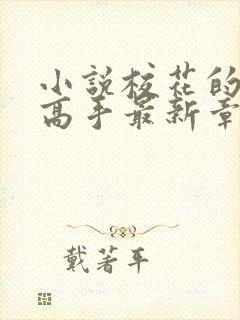 小說校花的
高手最新章
戴著平